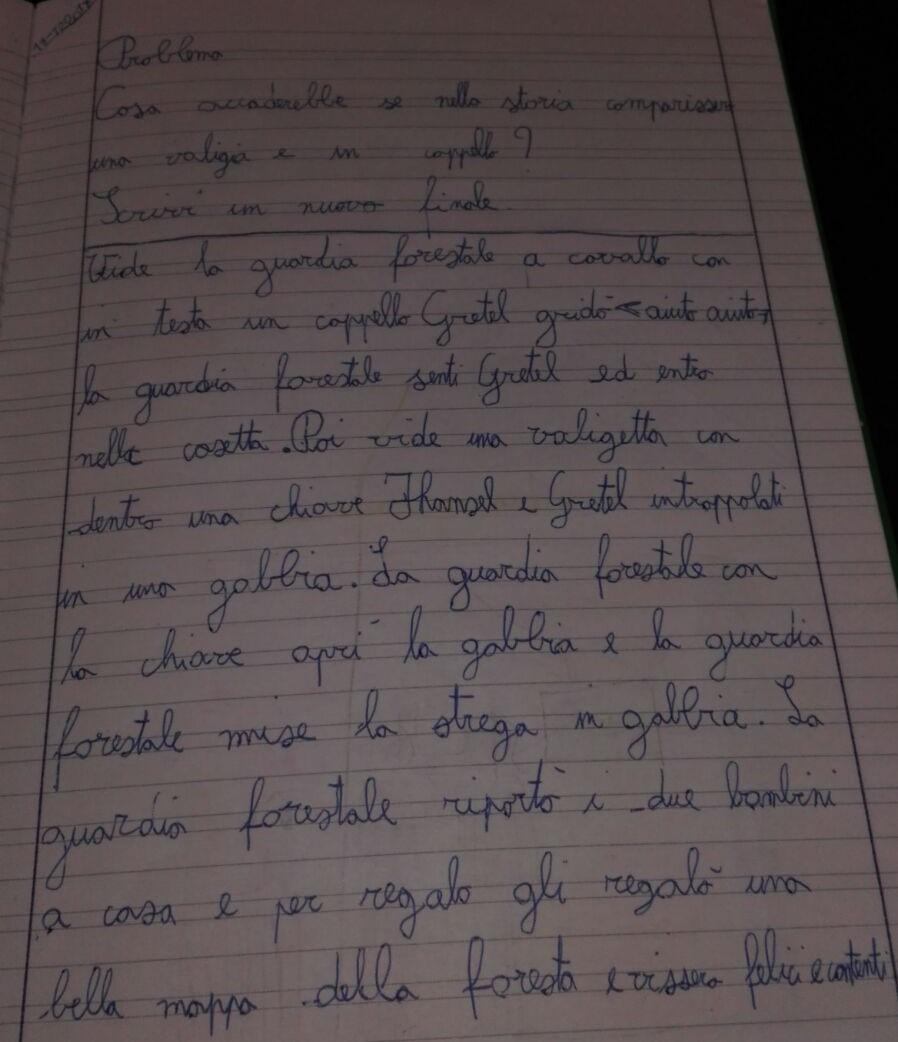 Problema
Cosa accaderebbe se nella storia comparissero
una valigia e un cappello?
Scrivi un nuovo finale.
Vide la guardia forestale a cavallo con
in testa un cappello Gretel gridò <aiuto aiuto>
la guardia forestale senti Gretel ed entro
nella casetta. Poi vide una valigetta con
dentro una chiave Jhansel e Gretel intrappolati
in una gabbia. La guardia forestale con
la chiave aprì la gabbia e la guardia
forestale mise la strega in gabbia. La
guardia forestale riportò i due bambini
a casa e per regalo gli regalò una
bella mappa della foresta e vissero felici e contenti